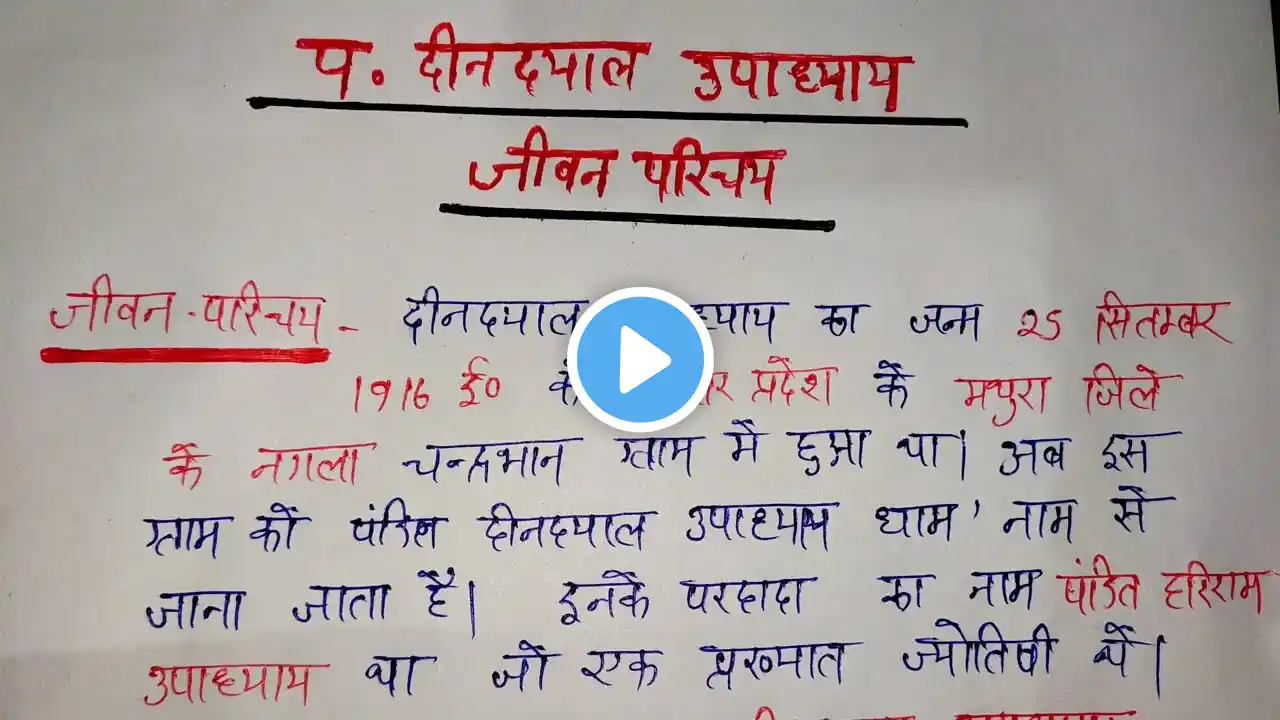 प. दीनदयाल उपाध्याय
जीवन परिचय
जीवन-परिचय - दीनदयाल का जन्म 25 सितम्बर
1916 ई० प्रदेश के मथुरा जिले
के नगला चन्द्रभान ग्राम में हुआ था। अब इस
ग्राम को पंडित दीनदयाल उपाध्याय धाम' नाम से
जाना जाता है। इनके परदादा का नाम पंडित हरिराम
उपाध्याय था जो एक प्रख्यात ज्योतिषी थे।